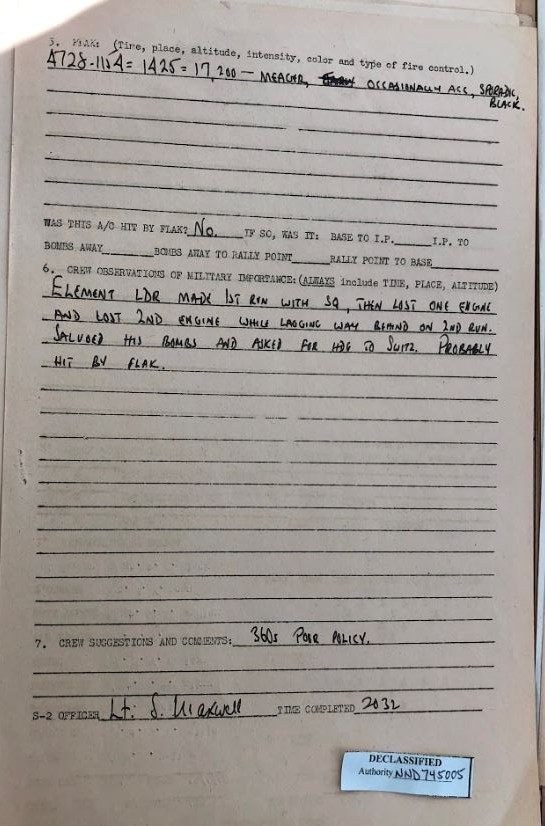 5. FLAK: (Time, place, altitude, intensity, color and type of fire control.)
4728-1154= 1425 = 17,200 — MEAGER, OCCASIONALLY ACC, SPORADIC,
BLACK.
WAS THIS A/C HIT BY FLAK? No. IF SO, WAS IT: BASE TO I.P. I.P. TO
BOMBS AWAY BOMBS AWAY TO RALLY POINT RALLY POINT TO BASE
6. CREW OBSERVATIONS OF MILITARY IMPORTANCE: (ALWAYS include TIME, PLACE, ALTITUDE)
ELEMENT LDR MADE 1ST RUN WITH SQ, THEN LOST ONE ENGINE
AND LOST 2ND ENGINE WHILE LAGGING WAY BEHIND ON 2ND RUN.
SALVOED HIS BOMBS AND ASKED FOR HDG TO SWITZ. PROBABLY
HIT BY FLAK.
7. CREW SUGGESTIONS AND COMMENTS: 360s POOR POLICY.
S-2 OFFICER Lt. S. Maxwell TIME COMPLETED 2032
DECLASSIFIED
Authority NND 745005